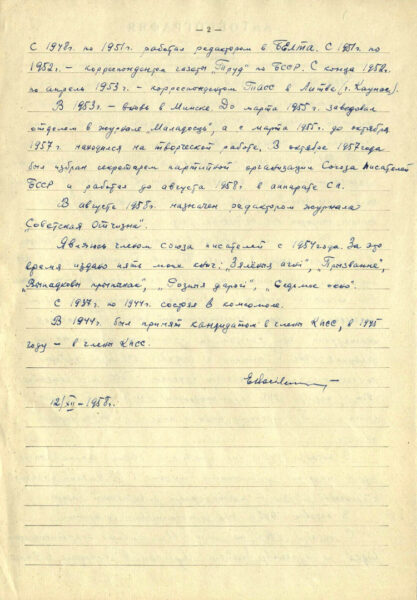 - 2 -
С 1948г. по 1951г. работал редактором в БЕЛТА. С 1951г. по
1952г. – корреспондентом газеты „Труд" по БССР. С конца 1952г.
по апрель 1953г. – корреспондентом ТАСС в Литве (г. Каунас).
В 1953г. – вновь в Минске. До марта 1955г. заведовал
отделом в журнале „Маладосць", а с марта 1955г. до октября
1957г. находился на творческой работе. В октябре 1957 года
был избран секретарем партийной организации Союза писателей
БССР и работал до августа 1958г. в аппарате СП.
В августе 1958г. назначен редактором журнала
„Советская Отчизна".
Являюсь членом союза писателей с 1954 года. За это
время издано пять моих книг: „Зялёныя агні", „Прызванне",
„Выпадковы прыпынак", „Родныя дарогі", „Седьмое небо".
С 1937г. по 1944г. состоял в комсомоле.
В 1944г. был принят кандидатом в члены КПСС, в 1945
году – в члены КПСС.
12/XII – 1958г.